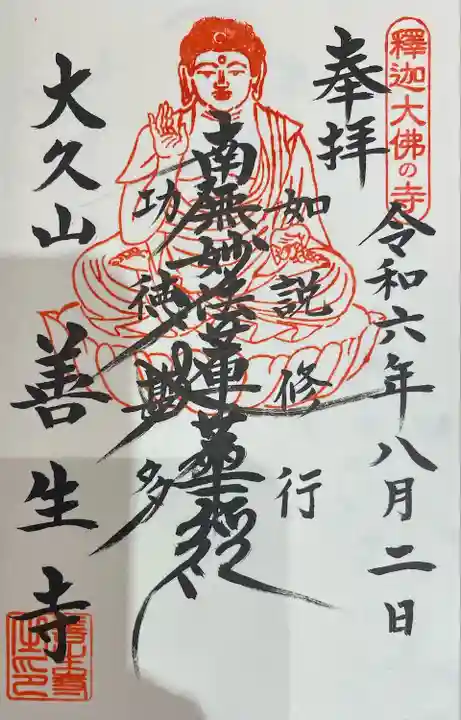 釋迦大佛の寺
令和六年八月二日
奉拝
如説修行
南無妙法蓮華経
功徳甚多
大久山 善生寺